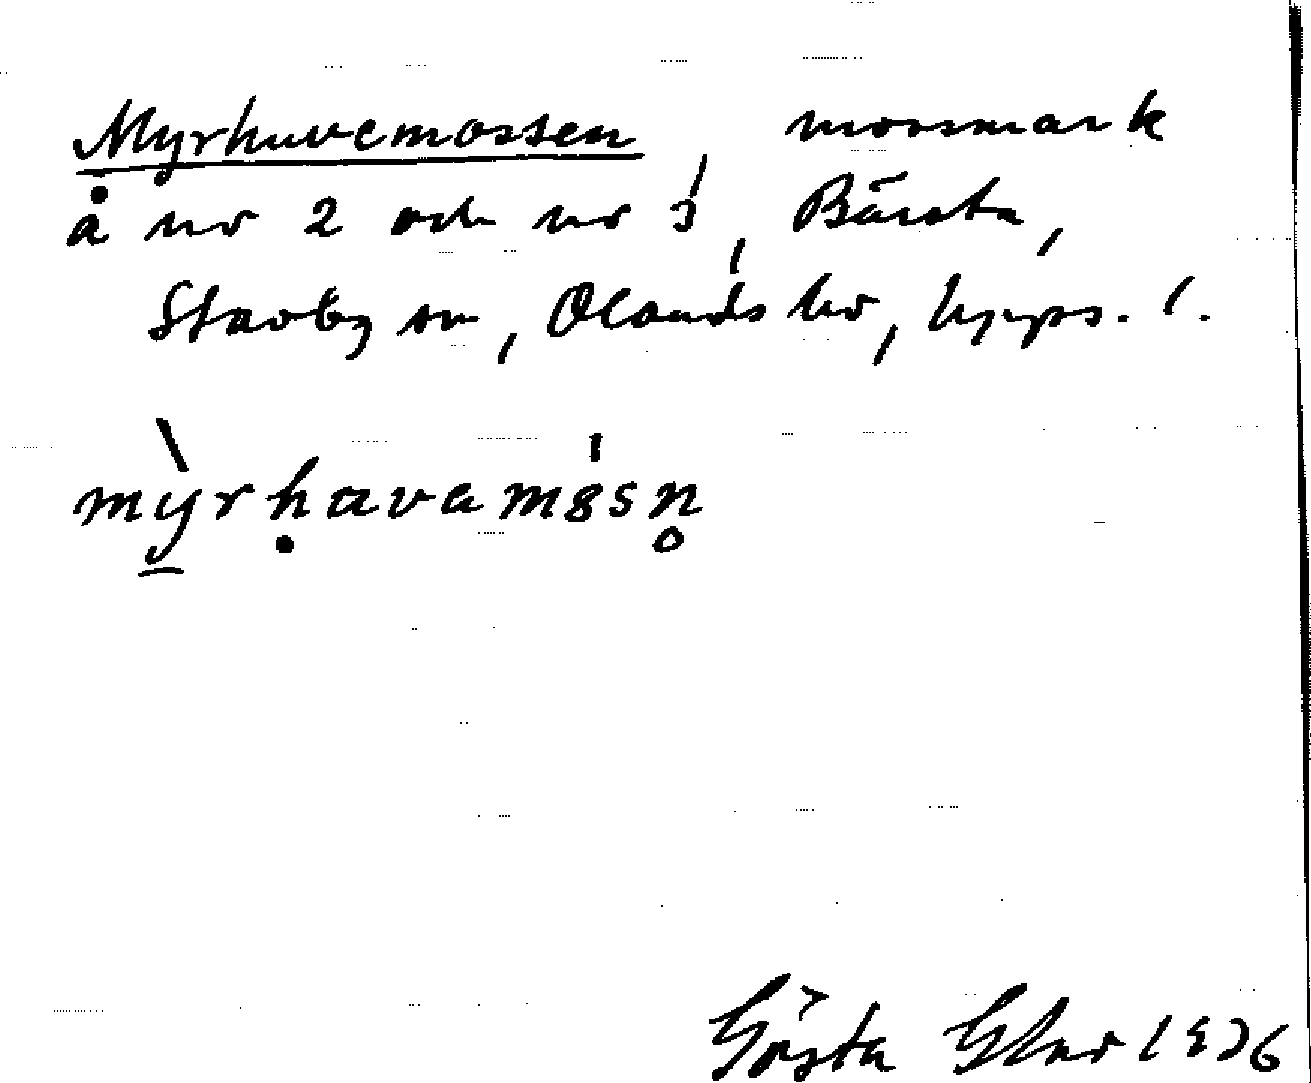 Myrhuvemossen, mossmark
å nr 2 och nr 3, Bärsta,
Stavby sn, Olands hd, Upps. l.
mỳrhavamɞsn̥
Gösta